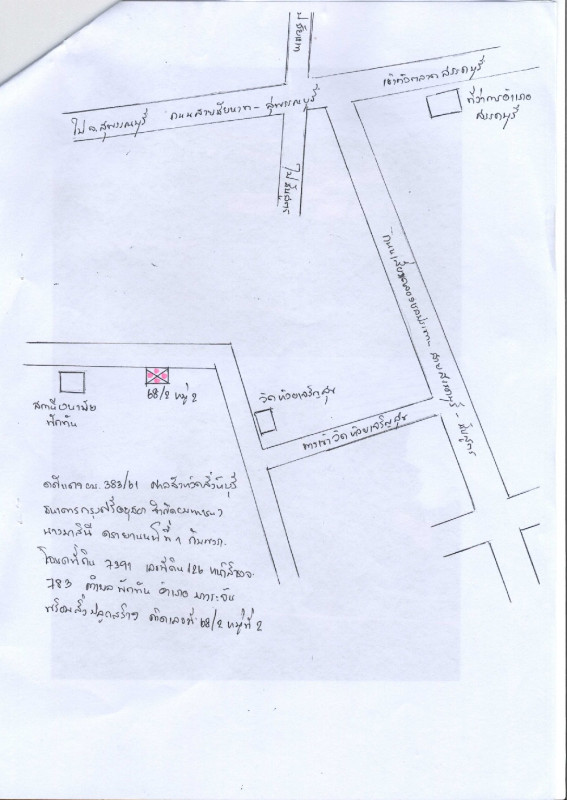 ไปชัยนาท
เข้าตัวตลาดสรรคบุรี
ถนนสายชัยนาท - สุพรรณบุรี
ไป จ.สุพรรณบุรี
ที่ว่าการอำเภอ
สรรคบุรี
ถนนเลียบคลองชลประทาน สายสรรคบุรี -
สถานีอนามัย
พักทัน
68/2 หมู่ 2
วัดห้วยเจริญสุข
ทางเข้าวัดห้วยเจริญสุข
383/61 ศาลจังหวัดสิงห์บุรี
ธนาคารกรุงศรีอยุธยา จำกัด(มหาชน)
นางมาลินี ที่ 1 กับพวก
โฉนดที่ดิน 7391 เลขที่ดิน 126
783 ตำบล พักทัน อำเภอ บางระจัน
พร้อมสิ่งปลูกสร้าง เลขที่ 68/2 หมู่ที่ 2